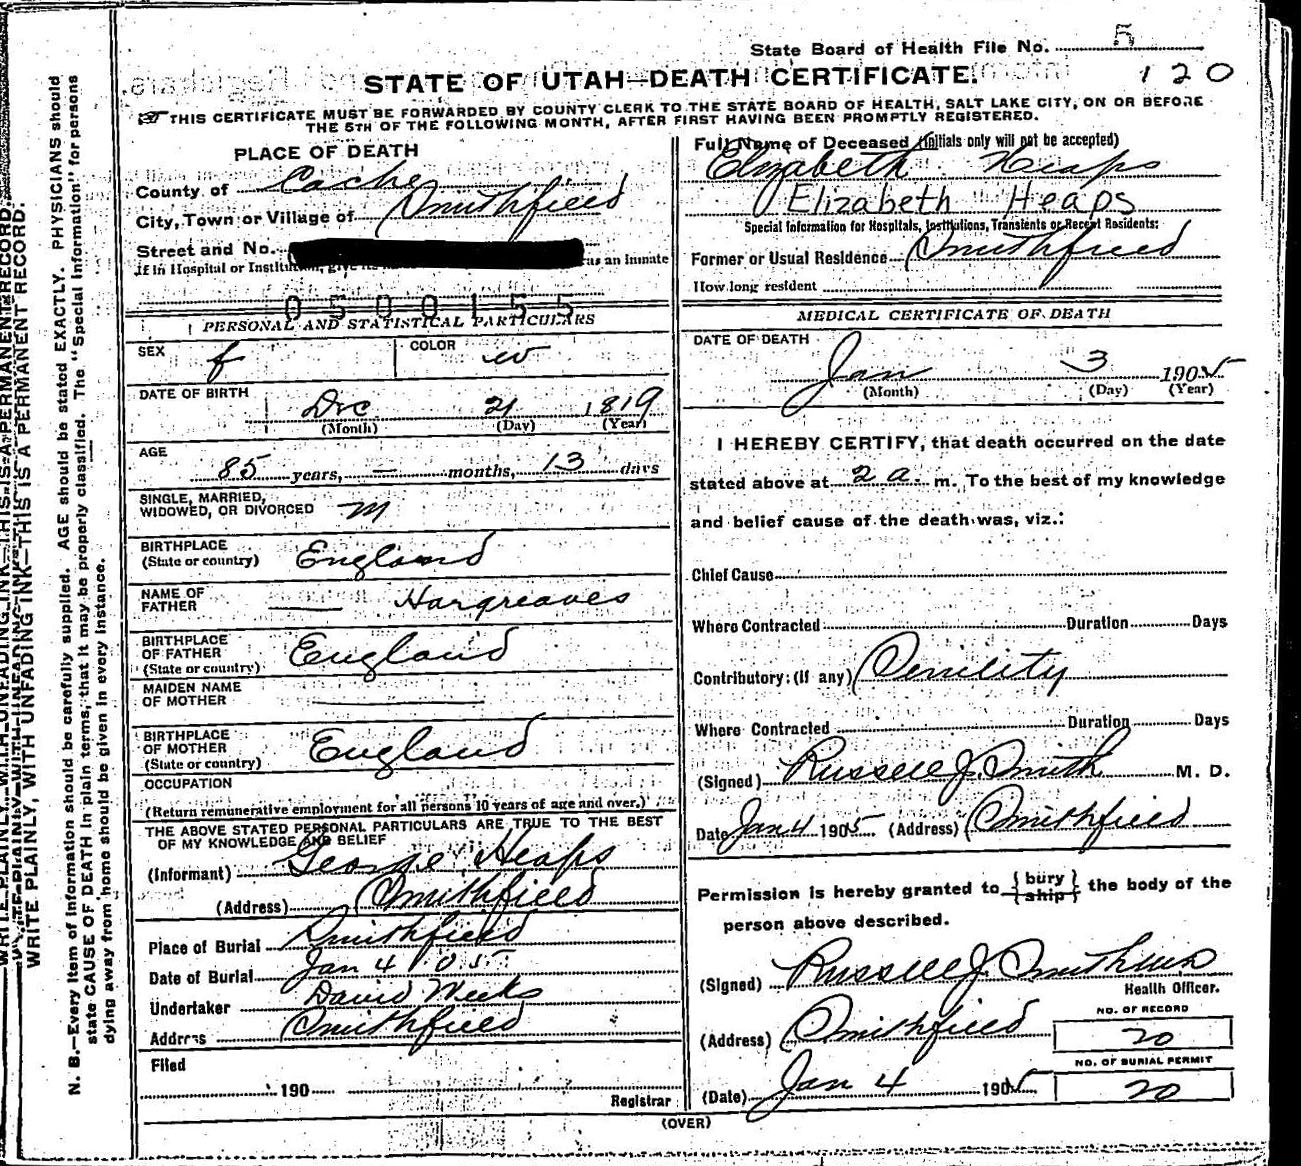 State Board of Health File No. 5
120
STATE OF UTAH—DEATH CERTIFICATE.
THIS CERTIFICATE MUST BE FORWARDED BY COUNTY CLERK TO THE STATE BOARD OF HEALTH, SALT LAKE CITY, ON OR BEFORE
THE 5TH OF THE FOLLOWING MONTH, AFTER FIRST HAVING BEEN PROMPTLY REGISTERED.
PLACE OF DEATH
County of Cache
City, Town or Village of Smithfield
Street and No.
If in Hospital or Institution, give its as an inmate
0500155
Full Name of Deceased (Initials only will not be accepted)
Elizabeth Heaps
Elizabeth Heaps
Special Information for Hospitals, Institutions, Transients or Recent Residents:
Former or Usual Residence Smithfield
How long resident
PERSONAL AND STATISTICAL PARTICULARS
SEX f COLOR w
DATE OF BIRTH Dec 21 1819
(Month) (Day) (Year)
AGE 85 years, — months, 13 days
SINGLE, MARRIED,
WIDOWED, OR DIVORCED m
BIRTHPLACE
(State or country) England
NAME OF
FATHER —— Hargreaves
BIRTHPLACE
OF FATHER
(State or country) England
MAIDEN NAME
OF MOTHER ——
BIRTHPLACE
OF MOTHER
(State or country) England
OCCUPATION
(Return remunerative employment for all persons 10 years of age and over.)
THE ABOVE STATED PERSONAL PARTICULARS ARE TRUE TO THE BEST
OF MY KNOWLEDGE AND BELIEF
(Informant) George Heaps
(Address) Smithfield
Place of Burial Smithfield
Date of Burial Jan 4 05
Undertaker David Weeks
Address Smithfield
Filed
190
Registrar
MEDICAL CERTIFICATE OF DEATH
DATE OF DEATH
Jan 3 1905
(Month) (Day) (Year)
I HEREBY CERTIFY, that death occurred on the date
stated above at 2 a. m. To the best of my knowledge
and belief cause of the death was, viz.:
Chief Cause
Where Contracted Duration Days
Contributory: (If any) Senility
Where Contracted Duration Days
(Signed) Russell J Smith M. D.
Date Jan 4 1905 (Address) Smithfield
Permission is hereby granted to {bury ship} the body of the
person above described.
(Signed) Russell J Smith
Health Officer.
(Address) Smithfield
NO. OF RECORD
20
NO. OF BURIAL PERMIT
20
(Date) Jan 4 1905
(OVER)
WRITE PLAINLY, WITH UNFADING INK—THIS IS A PERMANENT RECORD.
N. B.—Every item of information should be carefully supplied. AGE should be stated EXACTLY. PHYSICIANS should
state CAUSE OF DEATH in plain terms, that it may be properly classified. The "Special Information" for persons
dying away from home should be given in every instance.